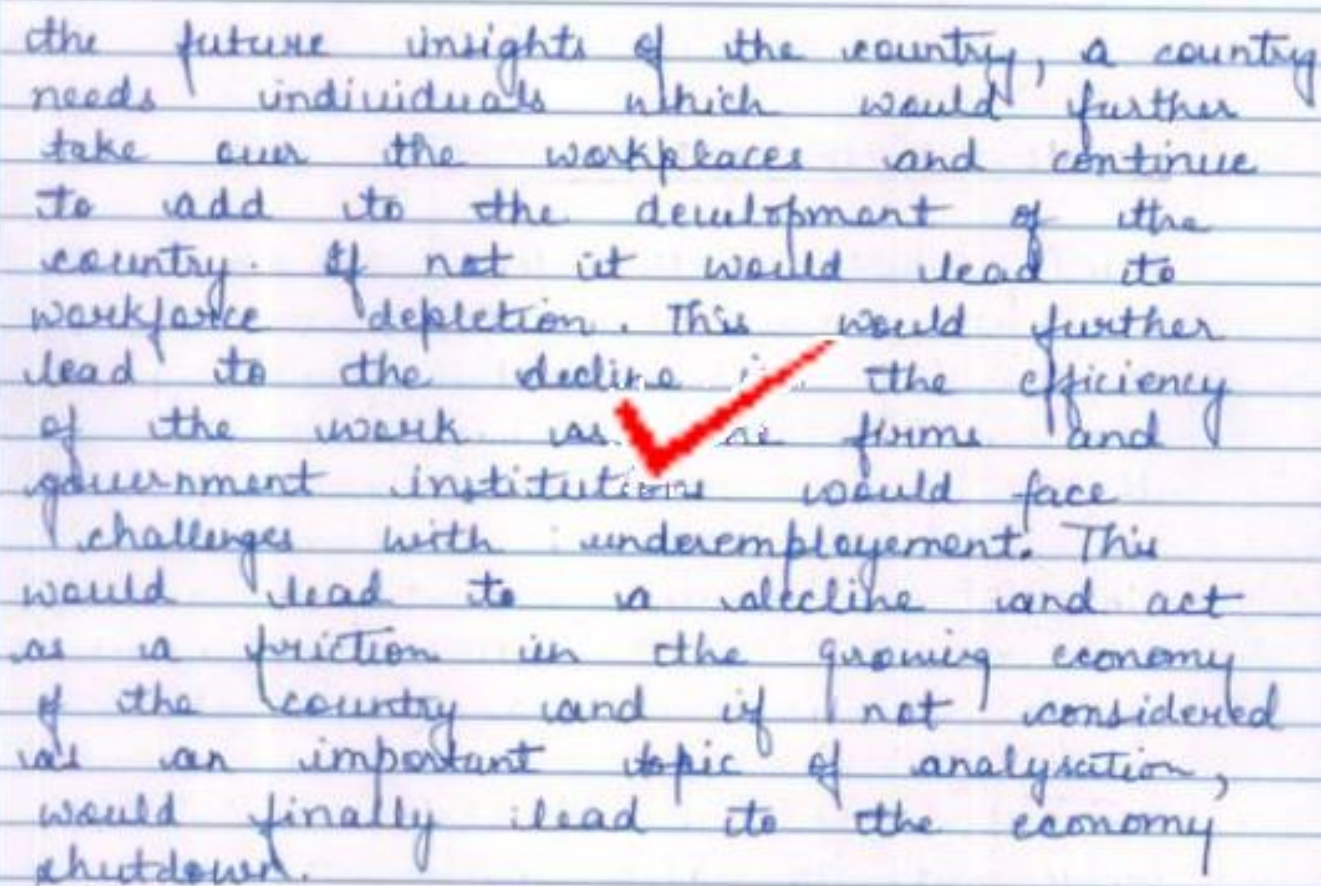 the future insights of the country, a country
needs individuals which would further
take over the workplaces and continue
to add to the development of the
country. If not it would lead to
workforce depletion. This would further
lead to the decline the efficiency
of the work as firms and
government institutions would face
challenges with underemployement. This
would lead to a decline and act
as a friction in the growing economy
of the country and if not considered
as an important topic of analysation,
would finally lead to the economy
shutdown.